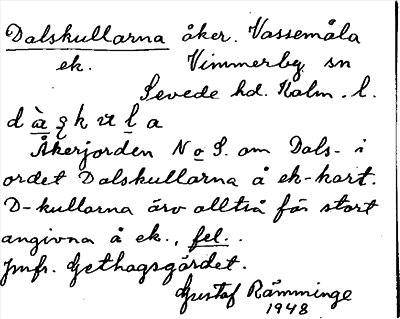 Dalskullarna åker. Vassemåla
ek. Vimmerby sn
Sevede hd. Kalm. l.
Åkerjorden N o S. om Dals- i
ordet Dalskullarna å ek-kart.
D-kullarna äro alltså för stort
angivna å ek., fel.
Jmfr. Gethagsgärdet.
Gustaf Rämminge
1948